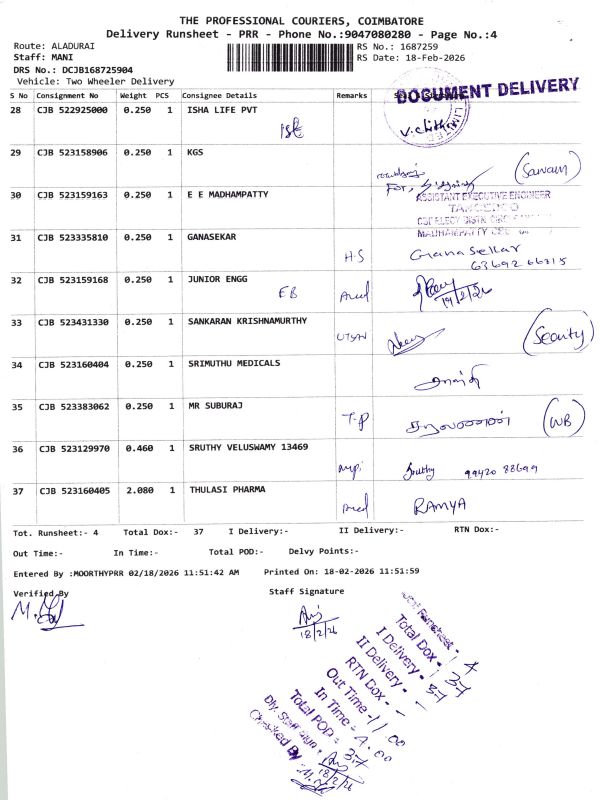 THE PROFESSIONAL COURIERS, COIMBATORE
Delivery Runsheet - PRR - Phone No.:9047080280 - Page No.:4
Route: ALADURAI
RS No.: 1687259
Staff: MANI
RS Date: 18-Feb-2026
DRS No.: DCJB168725904
Vehicle: Two Wheeler Delivery
DOCUMENT DELIVERY
S No Consignment No Weight PCS Consignee Details Remarks
28 CJB 522925000 0.250 1 ISHA LIFE PVT
29 CJB 523158906 0.250 1 KGS
(Sarvam)
For,
30 CJB 523159163 0.250 1 E E MADHAMPATTY
ASSISTANT EXECUTIVE ENGINEER
TANGEDCO
31 CJB 523335810 0.250 1 GANASEKAR
H.S Gnanasekar
32 CJB 523159168 0.250 1 JUNIOR ENGG
EB
19/2/26
33 CJB 523431330 0.250 1 SANKARAN KRISHNAMURTHY
(Seourty)
34 CJB 523160404 0.250 1 SRIMUTHU MEDICALS
35 CJB 523383062 0.250 1 MR SUBURAJ
T-P சரவணன் (WB)
36 CJB 523129970 0.460 1 SRUTHY VELUSWAMY 13469
99420 88699
37 CJB 523160405 2.080 1 THULASI PHARMA
RAMYA
Tot. Runsheet:- 4 Total Dox:- 37 I Delivery:- II Delivery:- RTN Dox:-
Out Time:- In Time:- Total POD:- Delvy Points:-
Entered By :MOORTHYPRR 02/18/2026 11:51:42 AM Printed On: 18-02-2026 11:51:59
Verified By Staff Signature
18/2/26
Runsheet - 4
Total Dox - 37
I Delivery - 37
II Delivery - -
RTN Dox - -
Out Time - 11.00
In Time - 4.00
Total POD - 37
Dly. Staff Sign
18/2/26
Checked By